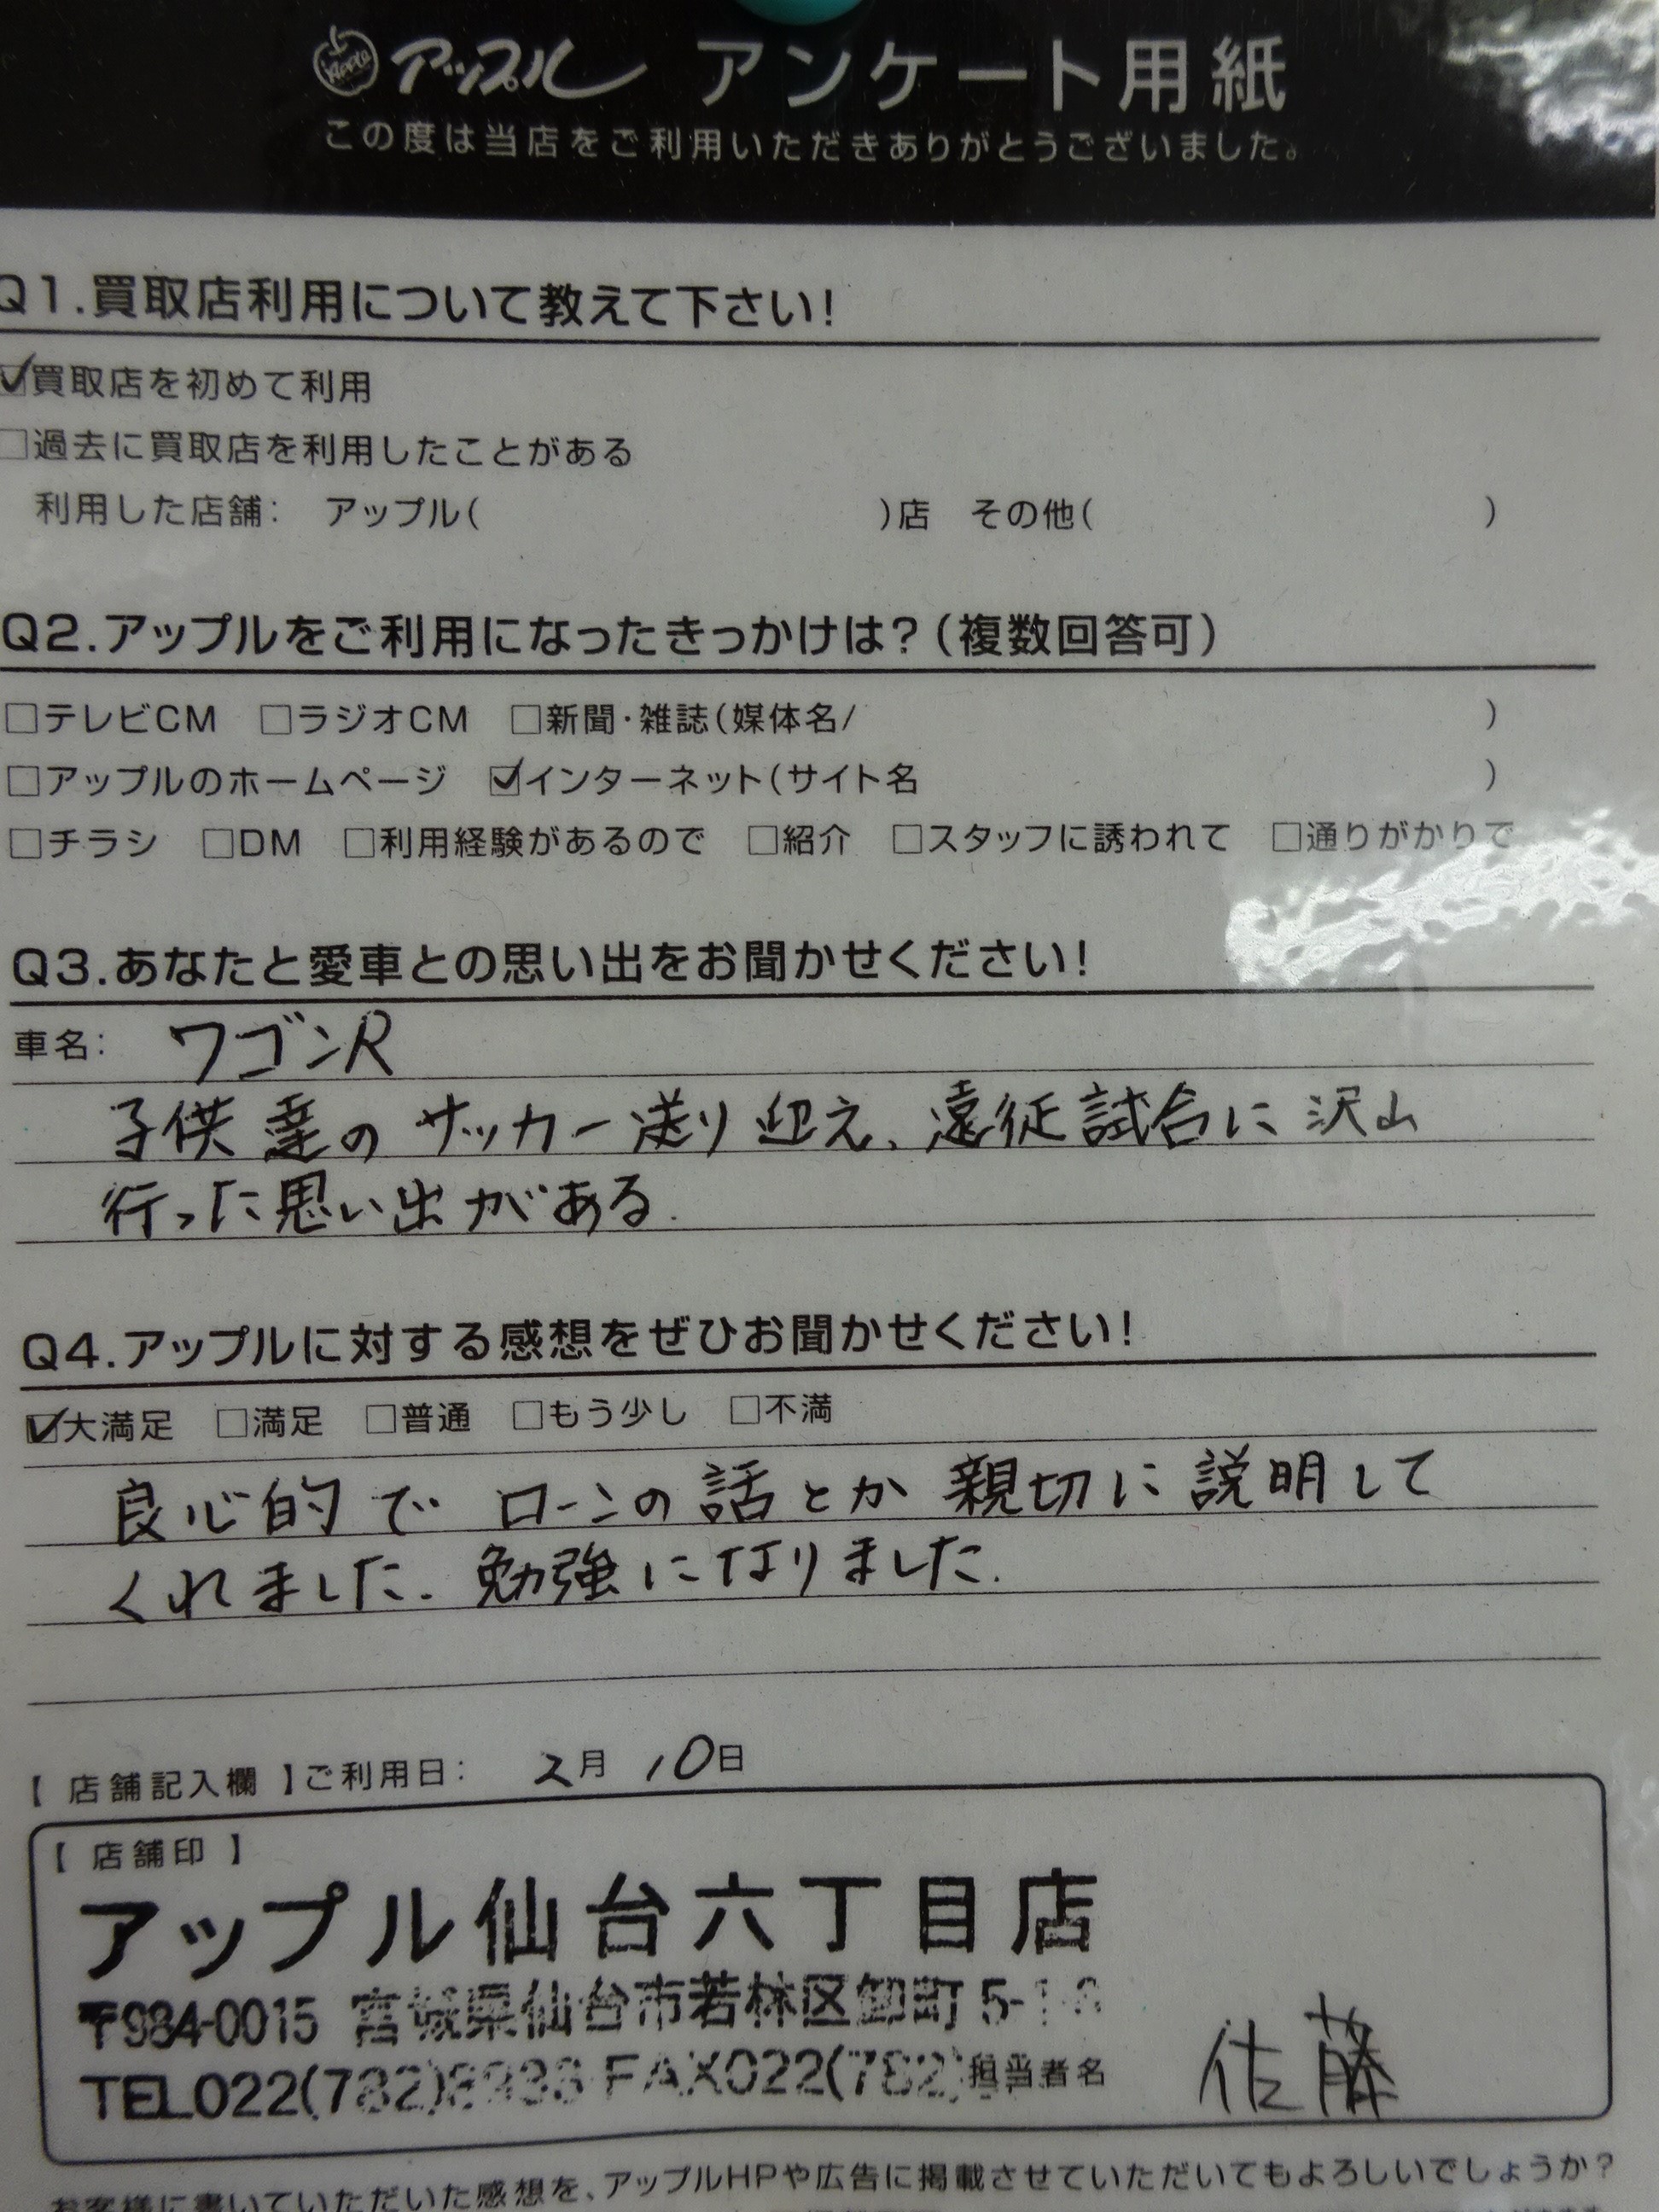 アップル アンケート用紙
この度は当店をご利用いただきありがとうございました。
Q1.買取店利用について教えて下さい!
☑買取店を初めて利用
□過去に買取店を利用したことがある
利用した店舗: アップル( )店 その他( )
Q2.アップルをご利用になったきっかけは?(複数回答可)
□テレビCM □ラジオCM □新聞・雑誌(媒体名/ )
□アップルのホームページ ☑インターネット(サイト名 )
□チラシ □DM □利用経験があるので □紹介 □スタッフに誘われて □通りがかりで
Q3.あなたと愛車との思い出をお聞かせください!
車名: ワゴンR
子供達のサッカー送り迎え、遠征試合に沢山
行った思い出がある.
Q4.アップルに対する感想をぜひお聞かせください!
☑大満足 □満足 □普通 □もう少し □不満
良心的で ローンの話とか親切に説明して
くれました. 勉強になりました.
【 店舗記入欄 】ご利用日: 2月 10日
【 店舗印 】
アップル仙台六丁目店
〒984-0015 宮城県仙台市若林区卸町5-1-
TEL022(782) FAX022(782) 担当者名 佐藤
お客様に書いていただいた感想を、アップルHPや広告に掲載させていただいてもよろしいでしょうか?